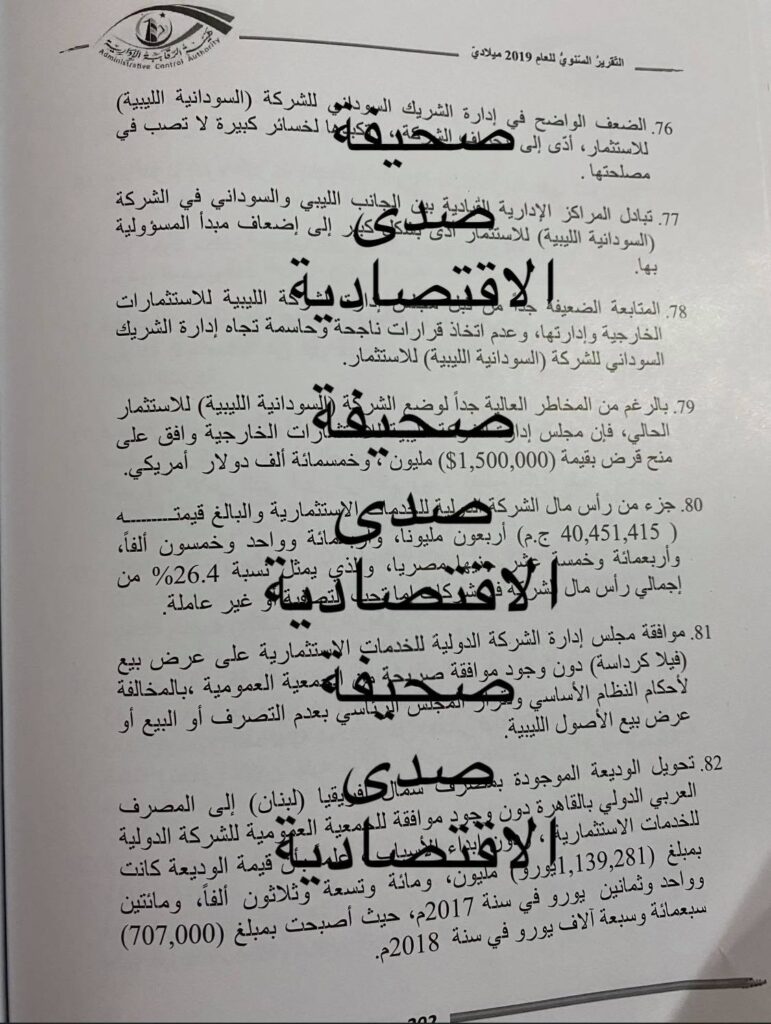 هيئة الرقابة الإدارية
Administrative Control Authority
التقرير السنوي للعام 2019 ميلادي
76. الضعف الواضح في إدارة الشريك السوداني للشركة (السودانية الليبية)
للاستثمار، أدّى إلى الشركة، لخسائر كبيرة لا تصب في
مصلحتها .
صحيفة
77. تبادل المراكز الإدارية القيادية بين الجانب الليبي والسوداني في الشركة
(السودانية الليبية) للاستثمار أدى بشكل كبير إلى إضعاف مبدأ المسؤولية
بها.
صدى
الاقتصادية
78. المتابعة الضعيفة جداً من قبل مجلس إدارة الشركة الليبية للاستثمارات
الخارجية وإدارتها، وعدم اتخاذ قرارات ناجحة وحاسمة تجاه إدارة الشريك
السوداني للشركة (السودانية الليبية) للاستثمار.
79. بالرغم من المخاطر العالية جداً لوضع الشركة (السودانية الليبية) للاستثمار
الحالي، فإن مجلس إدارة الشركة الليبية للاستثمارات الخارجية وافق على
منح قرض بقيمة (1,500,000$) مليون، وخمسمائة ألف دولار أمريكي.
صحيفة
80. جزء من رأس مال الشركة الدولية للخدمات الاستثمارية والبالغ قيمتـــــــــه
( 40,451,415 ج.م) أربعون مليونا، وأربعمائة وواحد وخمسون ألفاً،
وأربعمائة وخمسة عشر جنيها مصريا، والذي يمثل نسبة 26.4% من
إجمالي رأس مال الشركة في شركات إما تحت التصفية أو غير عاملة.
صدى
الاقتصادية
81. موافقة مجلس إدارة الشركة الدولية للخدمات الاستثمارية على عرض بيع
(فيلا كرداسة) دون وجود موافقة صريحة من الجمعية العمومية ،بالمخالفة
لأحكام النظام الأساسي وقرار المجلس الرئاسي بعدم التصرف أو البيع أو
عرض بيع الأصول الليبية.
صحيفة
82. تحويل الوديعة الموجودة بمصرف شمال افريقيا (لبنان) إلى المصرف
العربي الدولي بالقاهرة دون وجود موافقة للجمعية العمومية للشركة الدولية
للخدمات الاستثمارية ، دون إبداء الأسباب، علما بأن قيمة الوديعة كانت
بمبلغ (1,139,281يورو) مليون، ومائة وتسعة وثلاثون ألفاً، ومائتين
وواحد وثمانين يورو في سنة 2017م، حيث أصبحت بمبلغ (707,000)
سبعمائة وسبعة آلاف يورو في سنة 2018م.
صدى
الاقتصادية
202